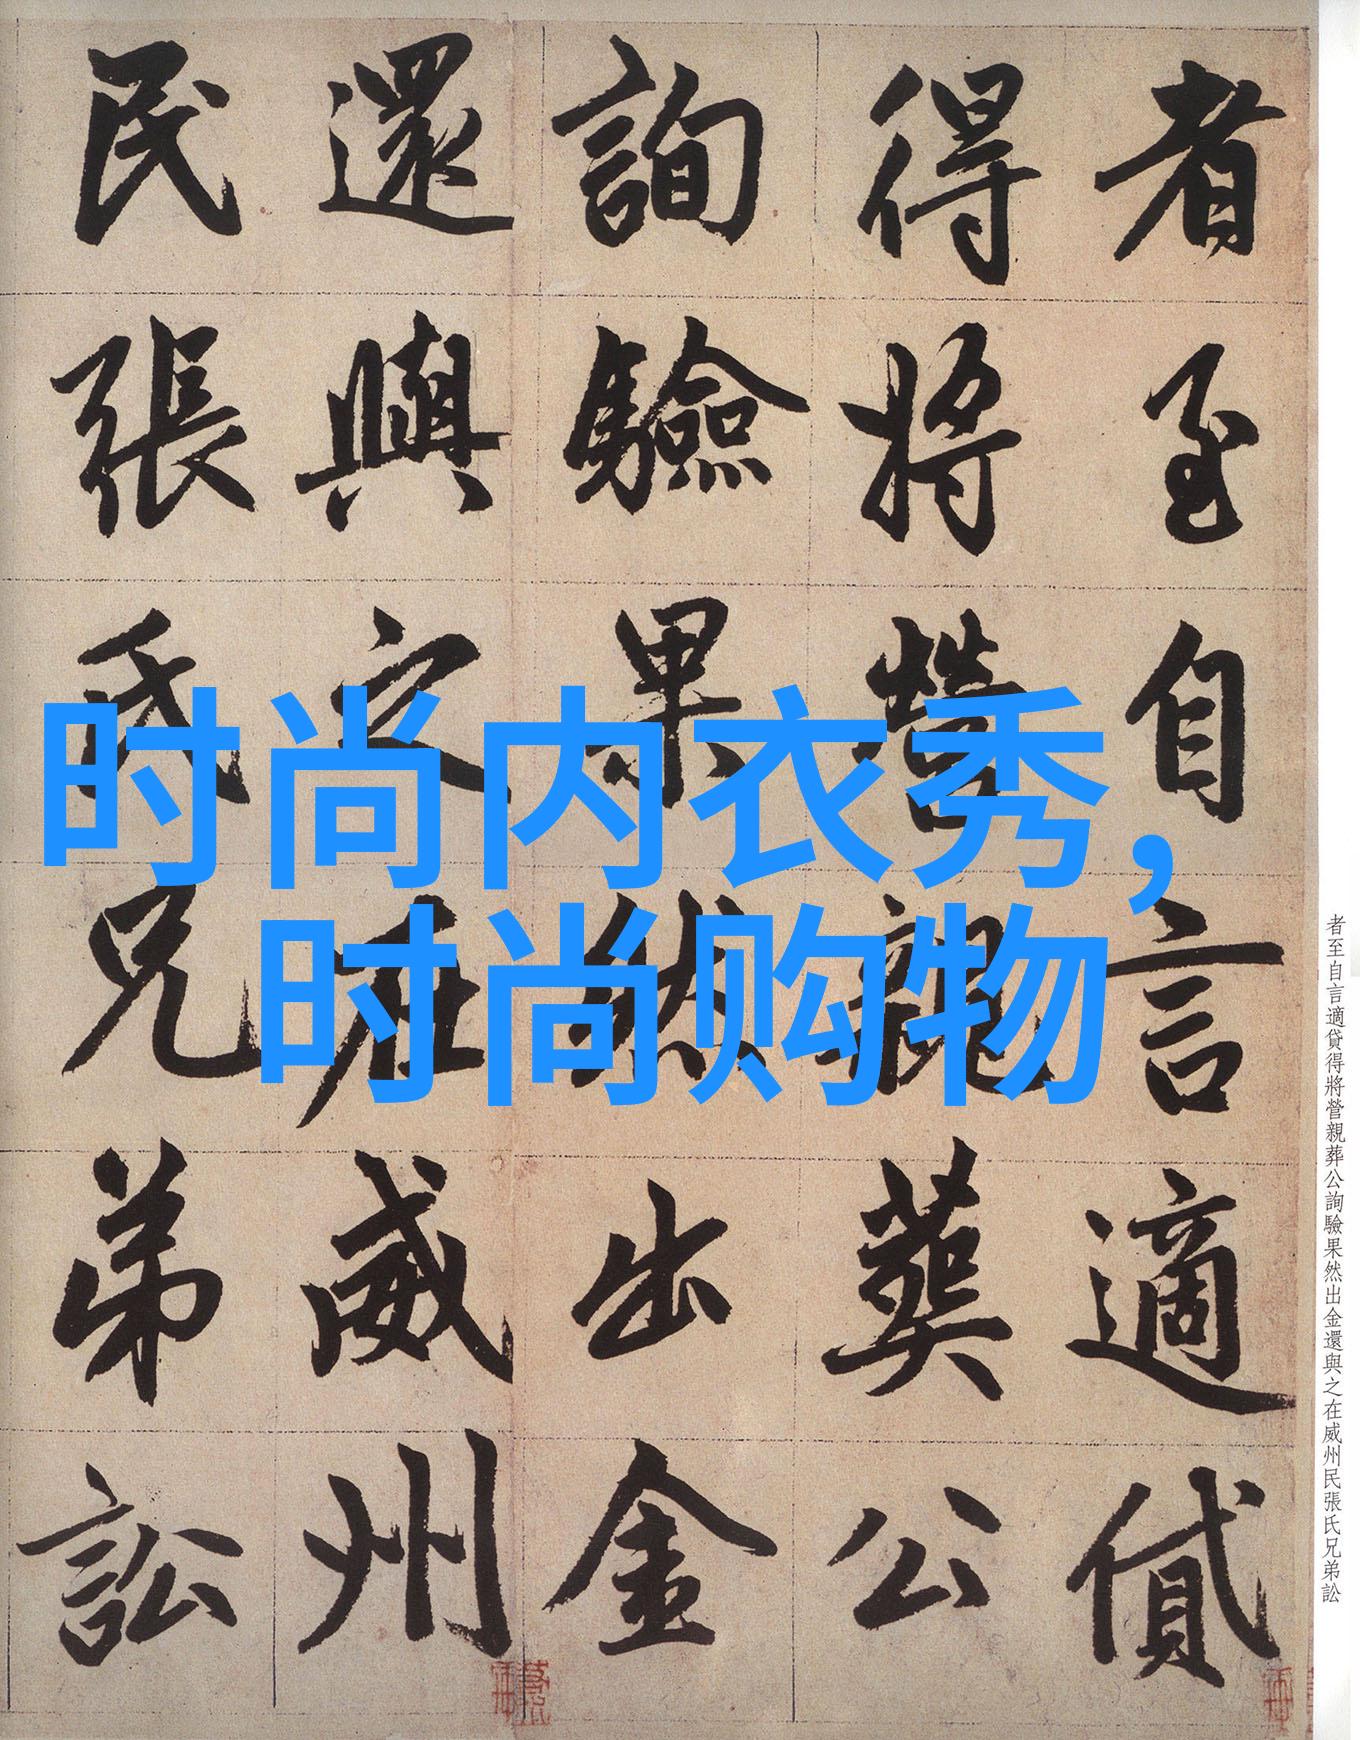 时尚内衣秀,
时尚购物
者至自言適貸
得將營親葬公
詢驗果然出金
還與之在威州
民張氏兄弟訟
者至自言適貸得將營親葬公詢驗果然出金還與之在威州民張氏兄弟訟